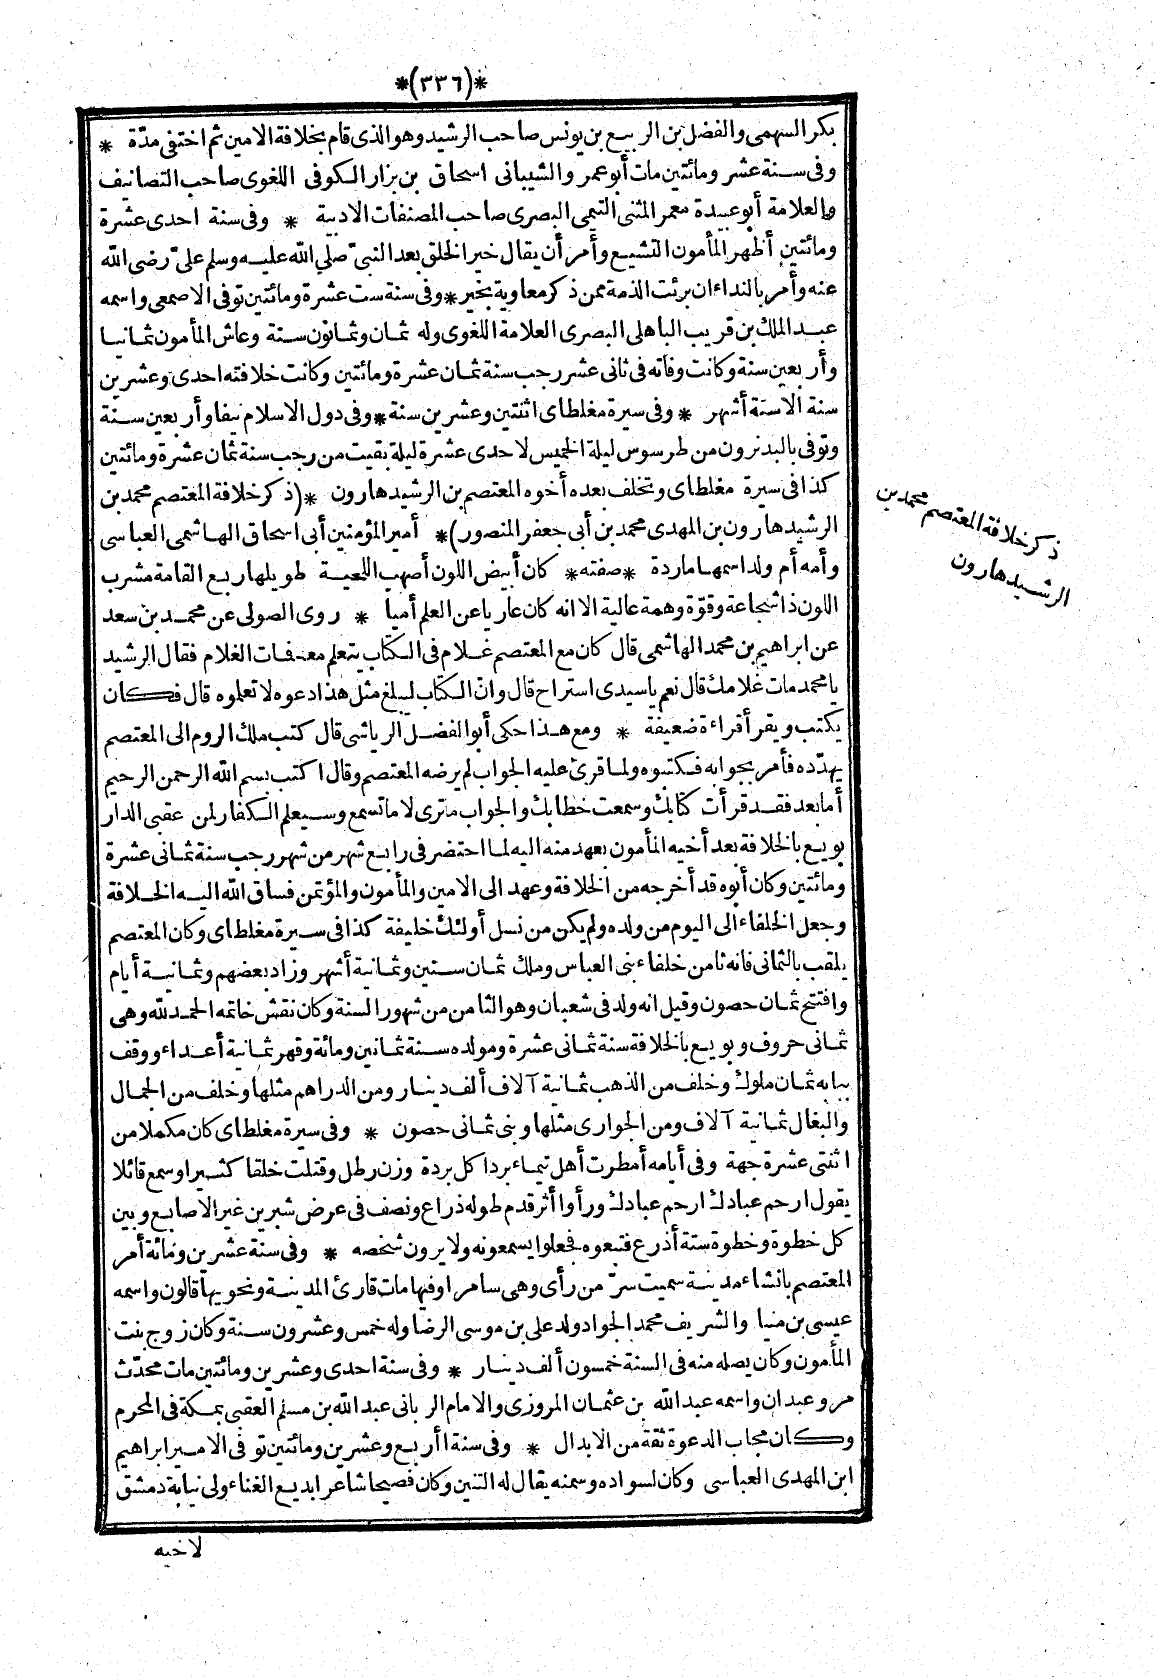 *(٣٣٦)*
بكر السهمى والفضل بن الربيع بن يونس صاحب الرشيد وهو الذى قام بخلافة الامين ثم اختفى مدّة *
وفى سنة عشر ومائتين مات أبو عمر والشيبانى اسحاق بن بزار الكوفى اللغوى صاحب التصانيف
والعلامة أبو عبيدة معمر المثنى التيمى البصرى صاحب المصنفات الادبية * وفى سنة احدى عشرة
ومائتين أظهر المأمون التشيع وأمر أن يقال خير الخلق بعد النبىّ صلى الله عليه وسلم علىّ رضى الله
عنه وأمر بالنداء ان برئت الذمة ممن ذكر معاوية بخير * وفى سنة ست عشرة ومائتين توفى الاصمعى واسمه
عبد الملك بن قريب الباهلى البصرى العلامة اللغوى وله ثمان وثمانون سنة وعاش المأمون ثمانيا
وأربعين سنة وكانت وفاته فى ثانى عشر رجب سنة ثمان عشرة ومائتين وكانت خلافته احدى وعشرين
سنة الاستة أشهر * وفى سيرة مغلطاى اثنتين وعشرين سنة * وفى دول الاسلام نيفا وأربعين سنة
وتوفى بالبدنرون من طرسوس ليلة الخميس لاحدى عشرة ليلة بقيت من رجب سنة ثمان عشرة ومائتين
كذا فى سيرة مغلطاى وتخلف بعده أخوه المعتصم بن الرشيد هارون * (ذكر خلافة المعتصم محمد بن
الرشيد هارون بن المهدى محمد بن أبى جعفر المنصور) * أمير المؤمنين أبى اسحاق الهاشمى العباسى
وأمه أم ولد اسمها ماردة * صفته * كان أبيض اللون أصهب اللحية طويلها ربع القامة مشرب
اللون ذا شجاعة وقوّة وهمة عالية الا انه كان عاريا عن العلم أميا * روى الصولى عن محمد بن سعد
عن ابراهيم بن محمد الهاشمى قال كان مع المعتصم غلام فى الكتاب يتعلم معه فمات الغلام فقال الرشيد
يا محمد مات غلامك قال نعم يا سيدى استراح قال وانّ الكتاب ليبلغ مثل هذا دعوه لا تعلموه قال فكان
يكتب ويقرأ قراءة ضعيفة * ومع هذا حكى أبو الفضل الرياشى قال كتب ملك الروم الى المعتصم
يهدّده فأمر بجوابه فكتبوه ولما قرئ عليه الجواب لم يرضه المعتصم وقال اكتب بسم الله الرحمن الرحيم
أما بعد فقد قرأت كتابك وسمعت خطابك والجواب ما ترى لا ما تسمع وسيعلم الكفار لمن عقبى الدار
بويع بالخلافة بعد أخيه المأمون بعهد منه اليه لما احتضر فى رابع شهر من شهر رجب سنة ثمانى عشرة
ومائتين وكان أبوه قد أخرجه من الخلافة وعهد الى الامين والمأمون والمؤتمن فساق الله اليه الخلافة
وجعل الخلفاء الى اليوم من ولده ولم يكن من نسل أولئك خليفة كذا فى سيرة مغلطاى وكان المعتصم
يلقب بالثمانى فانه ثامن خلفاء بنى العباس وملك ثمان سنين وثمانية أشهر وزاد بعضهم وثمانية أيام
وافتتح ثمان حصون وقيل انه ولد فى شعبان وهو الثامن من شهور السنة وكان نقش خاتمه الحمد لله وهى
ثمانى حروف وبويع بالخلافة سنة ثمانى عشرة ومولده سنة ثمانين ومائة وقهر ثمانية أعداء ووقف
ببابه ثمان ملوك وخلف من الذهب ثمانية آلاف ألف دينار ومن الدراهم مثلها وخلف من الجمال
والبغال ثمانية آلاف ومن الجوارى مثلها وبنى ثمانى حصون * وفى سيرة مغلطاى كان مكملا من
اثنتى عشرة جهة وفى أيامه أمطرت أهل تيماء بردا كل بردة وزن رطل وقتلت خلقا كثيرا وسمع قائلا
يقول ارحم عبادك ارحم عبادك ورأوا أثر قدم طوله ذراع ونصف فى عرض شبرين غير الاصابع وبين
كل خطوة وخطوة ستة أذرع فتبعوه فجعلوا يسمعونه ولا يرون شخصه * وفى سنة عشرين ومائة أمر
المعتصم بانشاء مدينة سميت سرّ من رأى وهى سامرا وفيها مات قارئ المدينة ونحويها قالون واسمه
عيسى بن منيا والشريف محمد الجواد ولد على بن موسى الرضا وله خمس وعشرون سنة وكان زوج بنت
المأمون وكان يصله منه فى السنة خمسون ألف دينار * وفى سنة احدى وعشرين ومائتين مات محدّث
مرو عبدان واسمه عبد الله بن عثمان المروزى والامام الربانى عبد الله بن مسلم العقبى بمكة فى المحرم
وكان مجاب الدعوة ثقة من الابدال * وفى سنة اأربع وعشرين ومائتين توفى الامير ابراهيم
ابن المهدى العباسى وكان لسواده وسمنه يقال له التنين وكان فصيحا شاعرا بديع الغناء ولى نيابة دمشق
لاخيه
ذكر خلافة المعتصم محمد بن
الرشيد هارون